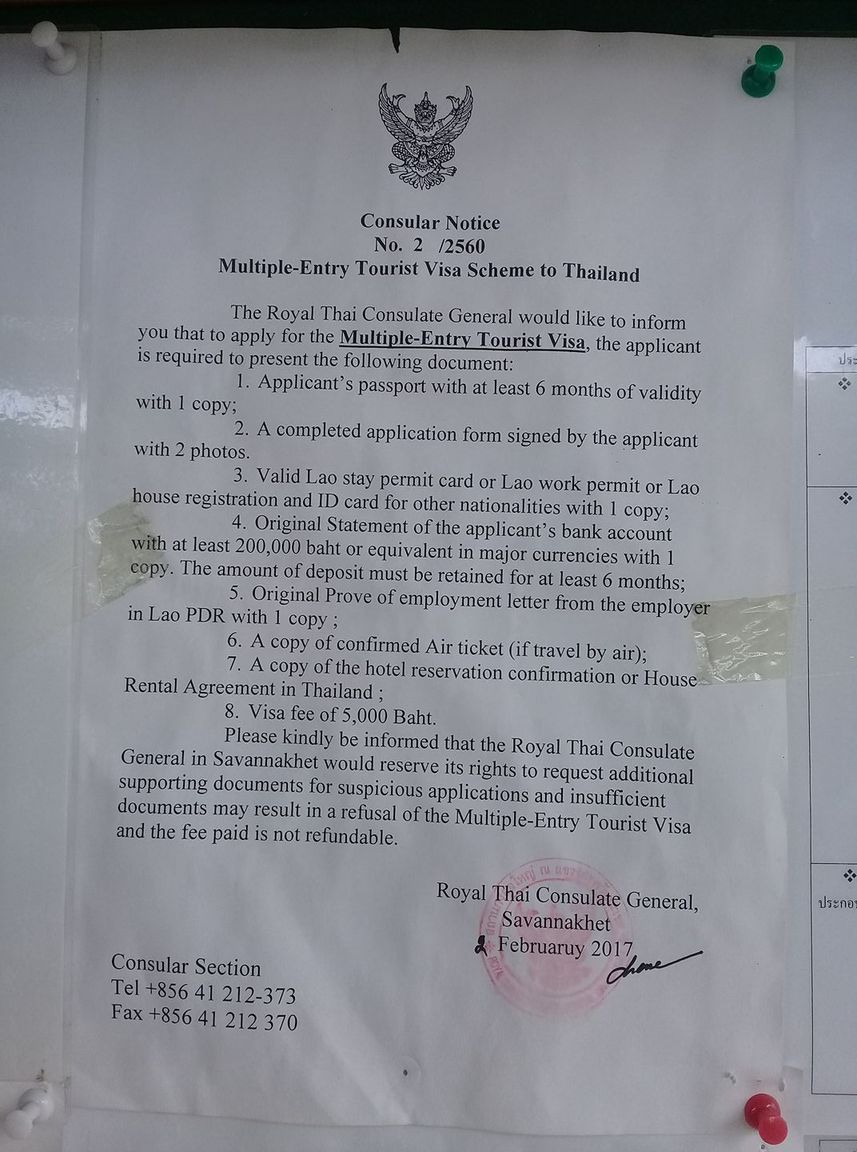 Consular Notice
No. 2 /2560
Multiple-Entry Tourist Visa Scheme to Thailand
The Royal Thai Consulate General would like to inform
you that to apply for the Multiple-Entry Tourist Visa, the applicant
is required to present the following document:
1. Applicant's passport with at least 6 months of validity
with 1 copy;
2. A completed application form signed by the applicant
with 2 photos.
3. Valid Lao stay permit card or Lao work permit or Lao
house registration and ID card for other nationalities with 1 copy;
4. Original Statement of the applicant's bank account
with at least 200,000 baht or equivalent in major currencies with 1
copy. The amount of deposit must be retained for at least 6 months;
5. Original Prove of employment letter from the employer
in Lao PDR with 1 copy ;
6. A copy of confirmed Air ticket (if travel by air);
7. A copy of the hotel reservation confirmation or House
Rental Agreement in Thailand ;
8. Visa fee of 5,000 Baht.
Please kindly be informed that the Royal Thai Consulate
General in Savannakhet would reserve its rights to request additional
supporting documents for suspicious applications and insufficient
documents may result in a refusal of the Multiple-Entry Tourist Visa
and the fee paid is not refundable.
Royal Thai Consulate General,
Savannakhet
2 Februaruy 2017
Consular Section
Tel +856 41 212-373
Fax +856 41 212 370